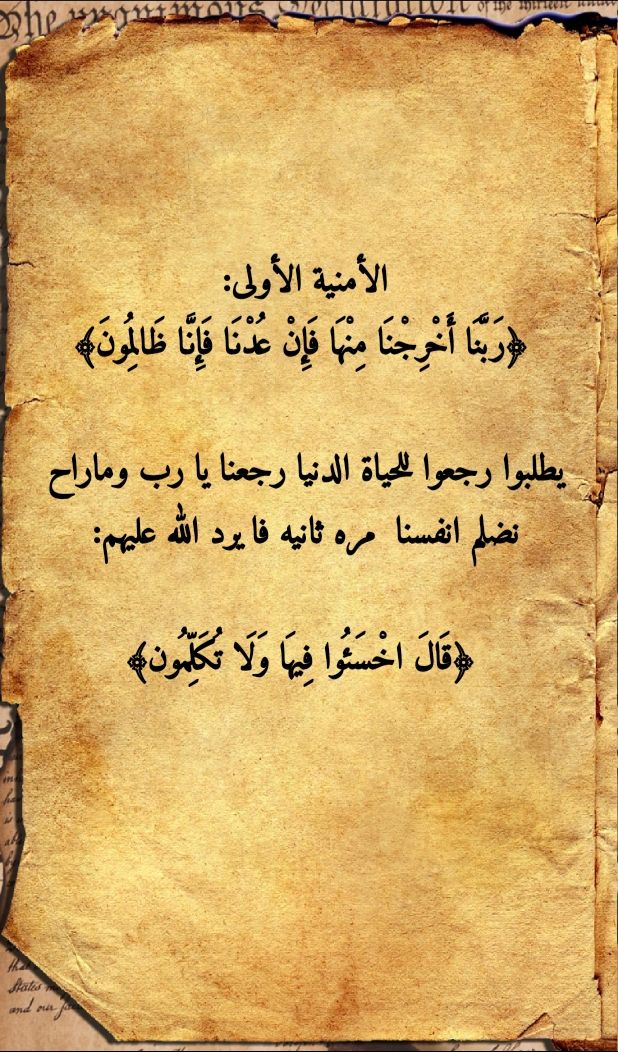 The unanimous Declaration of the thirteen united
الأمنية الأولى:
﴿رَبَّنَا أَخْرِجْنَا مِنْهَا فَإِنْ عُدْنَا فَإِنَّا ظَالِمُونَ﴾
يطلبوا رجعوا للحياة الدنيا رجعنا يا رب وماراح
نضلم انفسنا مره ثانيه فا يرد الله عليهم:
﴿قَالَ اخْسَئُوا فِيهَا وَلَا تُكَلِّمُون﴾
that
States
and our